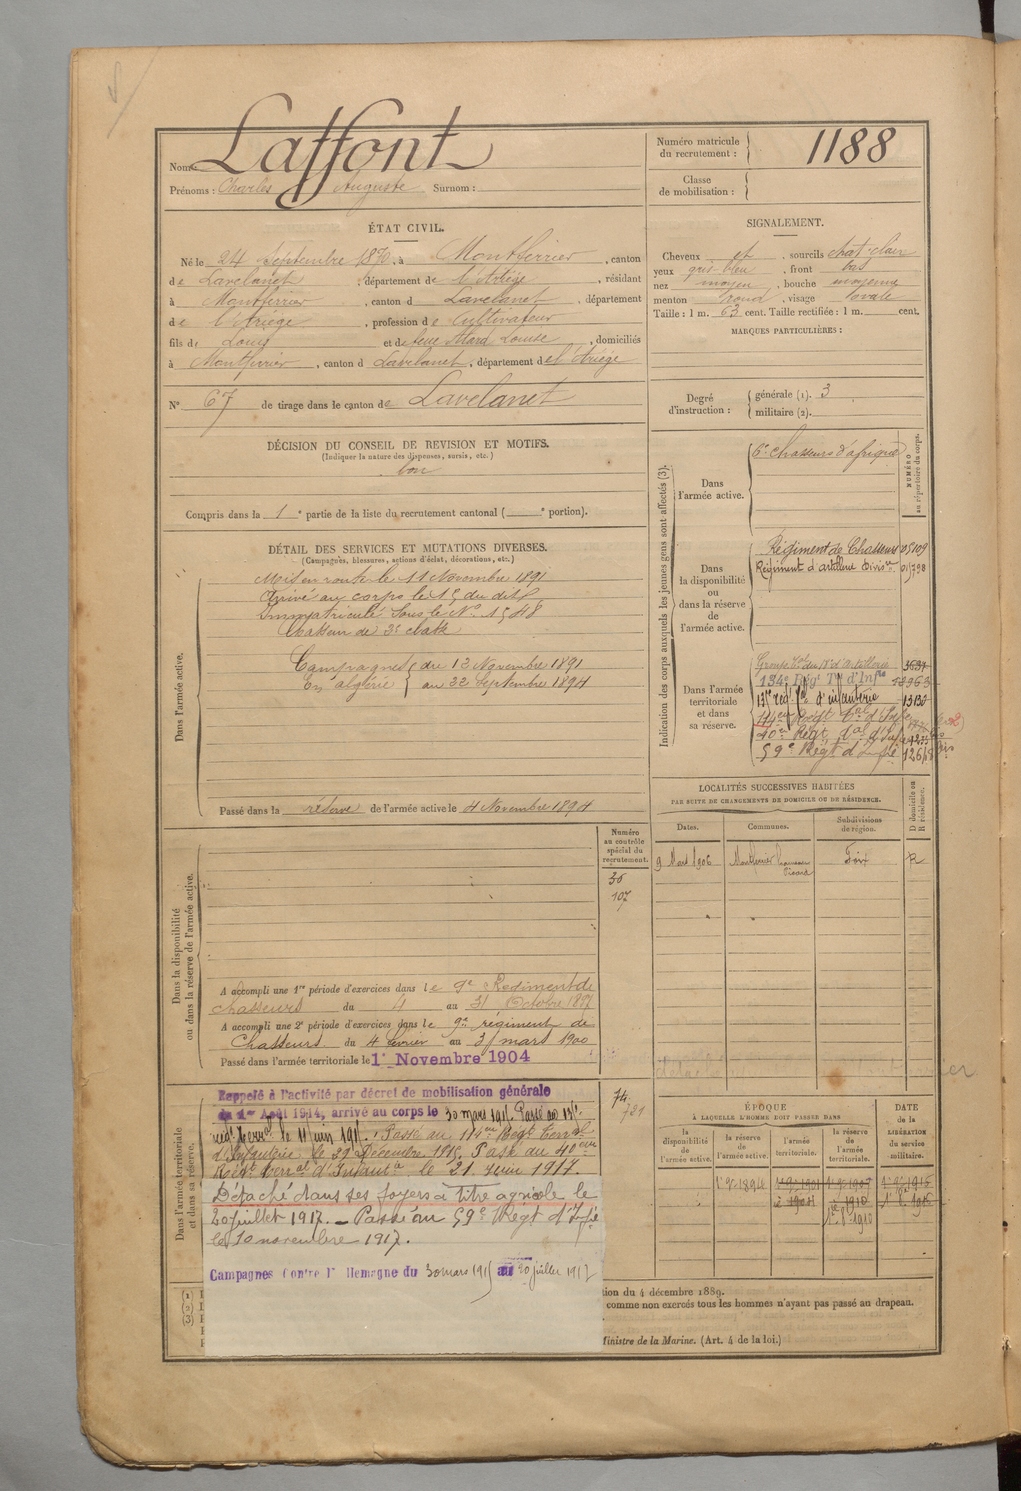 Nom Laffont
Prénoms : Charles Auguste Surnom :
Numéro matricule du recrutement : 1188
Classe de mobilisation :
ÉTAT CIVIL.
Né le 24 Septembre 1870, à Montferrier, canton
de Lavelanet, département de l'Ariège, résidant
à Montferrier, canton d Lavelanet, département
de l'Ariège, profession de Cultivateur
fils de Louis et de feue Louise, domiciliés
à Montferrier, canton d Lavelanet, département de l'Ariège
N° 67 de tirage dans le canton de Lavelanet
SIGNALEMENT.
Cheveux et, sourcils chat-clair
yeux gris-bleu, front bas
nez moyen, bouche moyenne
menton rond, visage ovale
Taille : 1 m. 63 cent. Taille rectifiée : 1 m. cent.
MARQUES PARTICULIÈRES :
Degré d'instruction :
générale (1). 3
militaire (2).
DÉCISION DU CONSEIL DE REVISION ET MOTIFS.
(Indiquer la nature des dispenses, sursis, etc.)
bon
Compris dans la 1e partie de la liste du recrutement cantonal ( e portion).
DÉTAIL DES SERVICES ET MUTATIONS DIVERSES.
(Campagnes, blessures, actions d'éclat, décorations, etc.)
Dans l'armée active.
Mis en route le 11 Novembre 1891
Arrivé au corps le 15 du dit
Immatriculé sous le N° 1548
Chasseur de 2e classe
Campagnes du 12 Novembre 1891
En algérie au 22 Septembre 1894
Passé dans la réserve de l'armée active le 4 Novembre 1894
Indication des corps auxquels les jeunes gens sont affectés (3).
NUMÉRO au répertoire du corps.
Dans l'armée active.
6e Chasseurs d'afrique
Dans la disponibilité ou dans la réserve de l'armée active.
Régiment de Chasseurs 05109
Régiment d'artillerie Divisre
Dans l'armée territoriale et dans sa réserve.
134e Rég Tal d'Infie
135e régt tal d'infanterie 13130
114eme Regt Tal d'Infie
40e Regt Tal d'Infie
59e Régt d'Infie
LOCALITÉS SUCCESSIVES HABITÉES
PAR SUITE DE CHANGEMENTS DE DOMICILE OU DE RÉSIDENCE.
Dates. Communes. Subdivisions de région. D domicile ou R résidence.
9 Mars 1906 Montferrier Foix R
Dans la disponibilité ou dans la réserve de l'armée active.
Numéro au contrôle spécial du recrutement.
36
107
A accompli une 1re période d'exercices dans le 9e Regiment de
chasseurs du 4 au 31 Octobre 1897
A accompli une 2e période d'exercices dans le 9e régiment de
Chasseurs du 4 février au 3 mars 1900
Passé dans l'armée territoriale le 1er Novembre 1904
Dans l'armée territoriale et dans sa réserve.
74
781
Rappelé à l'activité par décret de mobilisation générale
du 1er Août 1914, arrivé au corps le 30 mars 1915. Passé au 135e
régt terral le 11 juin 1915. Passé au 114eme Regt Terral
d'Infanterie le 29 Décembre 1915. Passé au 40eme
Regt Terral d'Infanterie le 21 Juin 1917.
Détaché dans ses foyers à titre agricole le
20 juillet 1917. — Passé au 59e Régt d'Infie
le 10 novembre 1917.
Campagnes Contre l'Allemagne du 30 mars 1915 au 20 juillet 1917
ÉPOQUE
À LAQUELLE L'HOMME DOIT PASSER DANS
la disponibilité de l'armée active. la réserve de l'armée active. l'armée territoriale. la réserve de l'armée territoriale.
DATE de la LIBÉRATION du service militaire.
1er 9bre 1894
(1)
(2)
(3)
tion du 4 décembre 1889.
comme non exercés tous les hommes n'ayant pas passé au drapeau.
Ministre de la Marine. (Art. 4 de la loi.)